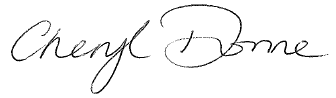 Cheryl Donne